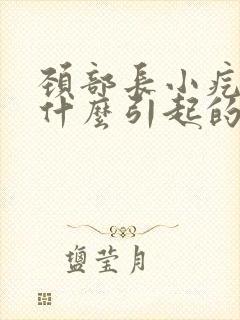 頸部長小疙
什麼引起的
鹽莹月